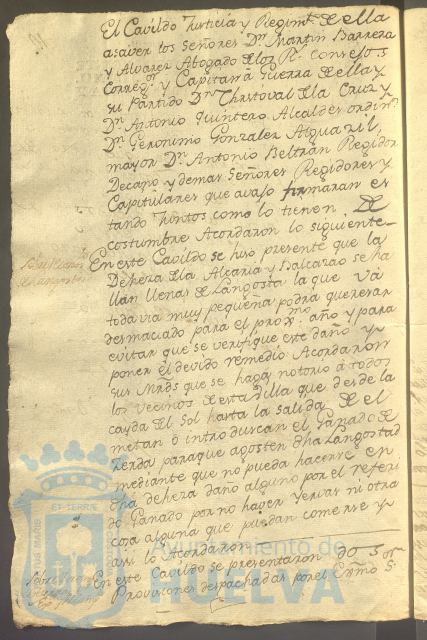 El Cavildo Justicia y Regimto. de ella
asaver los Señores Dn. Martin Barrera
y Alvarez Abogado de los Rs. Consejos
Corregor. y Capitan a Guerra de ella y
su Partido Dn. Christoval de la Cruz y
Dn. Antonio Quintero Alcaldes ordinos.
Dn. Geronimo Gonzalez Alguazil
mayor Dn. Antonio Beltran Regidor
Decano y demas Señores Regidores y
Capitulares que avajo firmaran es
tando Juntos como lo tienen de
costumbre Acordaron lo siguiente
En este Cavildo se hiso presente que la
Dehesa de la Alcaria y Balcarao se ha
llan llenas de Langosta la que va
todavia muy pequeña podra queresar
desmaciado para el proxmo. año y para
evitar que se verifique este daño y
poner el devido remedio Acordaron
sus Mrds que se haga notorio a todos
los vecinos de esta Villa que desde la
cayda del Sol hasta la salida de el
metan ò introduscan el Ganado de
Zerda paraque agosten dha Langosta
mediante que no pueda hacerse en
dha dehesa daño alguno por el referi
do Ganado por no haver Yervas ni otra
cosa alguna que puedan comerse y
assi lo Acordaron
En este Cavildo se presentaron dos
Provisiones despachadas por el Exmo. Sr.
Ayuntamiento de
HUELVA